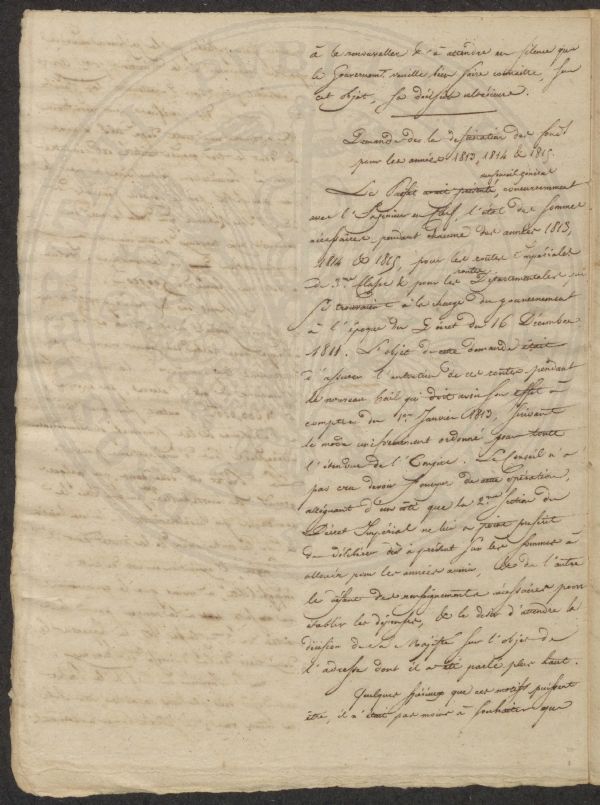 à le renouveller & à attendre en silence que
le Gouvernemt. veuille bien faire connoitre, sur
cet objet, sa décision ultérieure.
Demande de la destination des fonds
pour les années 1813, 1814 & 1815.
au conseil général
Le Préfet avait présenté, concurremment
avec l'Ingénieur en chef, l'état des sommes
nécessaires pendant chacune des années 1813,
1814 & 1815, pour les routes Impériales
routes
de 3me. Classe & pour les Départementales, qui
se trouvaient à la charge du gouvernement
à l'époque du Décret du 16 Décembre
1811. L'objet de cette demande était
d'assurer l'entretien de ces routes pendant
le nouveau bail qui doit avoir son effet à
compter du 1er Janvier 1813, suivant
le mode uniformément ordonné pour toute
l'étendue de l'Empire. Le Conseil n'a
pas cru devoir s'occuper de cette opération,
alléguant d'un côté que la 2me. Section du
Décret Impérial ne lui a point prescrit
de délibérer dès à présent sur les sommes à
allouer pour les années à venir, & de l'autre
le défaut de renseignements nécessaires pour
établir les dépenses, & le désir d'attendre la
décision de sa Majesté sur l'objet de
l'adresse dont il a été parlé plus haut.
Quelques sérieux que ces motifs puissent
être, il n'était pas moins à souhaiter que